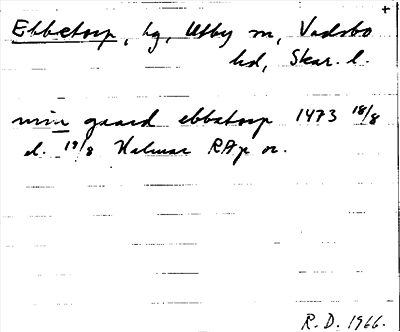 +
Ebbetorp, hg, Utby sn, Vadsbo
hd, Skar. l.
min gaard ebbatorp 1473 18/8
d. 19/8 Kalmar RAp or.
R.D. 1966.